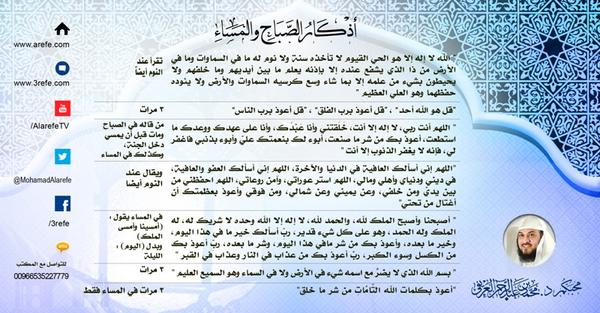 أذكار الصباح والمساء
"الله لا إله إلا هو الحي القيوم لا تأخذه سنة ولا نوم له ما في السماوات وما في
الأرض من ذا الذي يشفع عنده إلا بإذنه يعلم ما بين أيديهم وما خلفهم ولا
يحيطون بشيء من علمه إلا بما شاء وسع كرسيه السماوات والأرض ولا يئوده
حفظهما وهو العلي العظيم"
تقرأ عند
النوم أيضاً
"قل هو الله أحد" ، "قل أعوذ برب الفلق" ، "قل أعوذ برب الناس"
٣ مرات
"اللهم أنت ربي، لا إله إلا أنت، خلقتني وأنا عبدك، وأنا على عهدك ووعدك ما
استطعت، أعوذ بك من شر ما صنعت، أبوء لك بنعمتك عليّ وأبوء بذنبي فاغفر
لي، فإنه لا يغفر الذنوب إلا أنت"
من قاله في الصباح
ومات قبل أن يمسي
دخل الجنة،
وكذلك في المساء
"اللهم إني أسألك العافية في الدنيا والآخرة، اللهم إني أسألك العفو والعافية،
في ديني ودنياي وأهلي ومالي، اللهم استر عوراتي، وآمن روعاتي، اللهم احفظني من
بين يدي ومن خلفي، وعن يميني وعن شمالي، ومن فوقي وأعوذ بعظمتك أن
أغتال من تحتي"
ويقال عند
النوم أيضاً
"أصبحنا وأصبح الملك لله، والحمد لله، لا إله إلا الله وحده لا شريك له، له
الملك وله الحمد، وهو على كل شيء قدير، ربّ أسألك خير ما في هذا اليوم،
وخير ما بعده، وأعوذ بك من شر ما في هذا اليوم، وشر ما بعده، ربّ أعوذ بك
من الكسل وسوء الكبر، ربّ أعوذ بك من عذاب في النار وعذاب في القبر"
في المساء يقول :
(أمسينا وأمسى
الملك)
وبدل (اليوم) :
الليلة
"بسم الله الذي لا يضرّ مع اسمه شيء في الأرض ولا في السماء وهو السميع العليم"
٣ مرات
"أعوذ بكلمات الله التامّات من شر ما خلق"
٣ مرات في المساء فقط
www.arefe.com
www.3refe.com
You Tube
/AlarefeTV
@MohamadAlarefe
/3refe
للتواصل مع المكتب
00966535227779
محبكم د. محمد بن عبد الرحمن العريفي